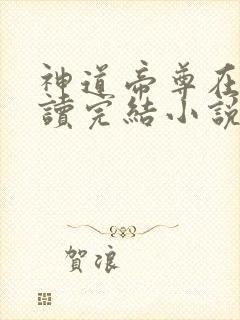 神道帝尊在
讀完結小說
賀浪